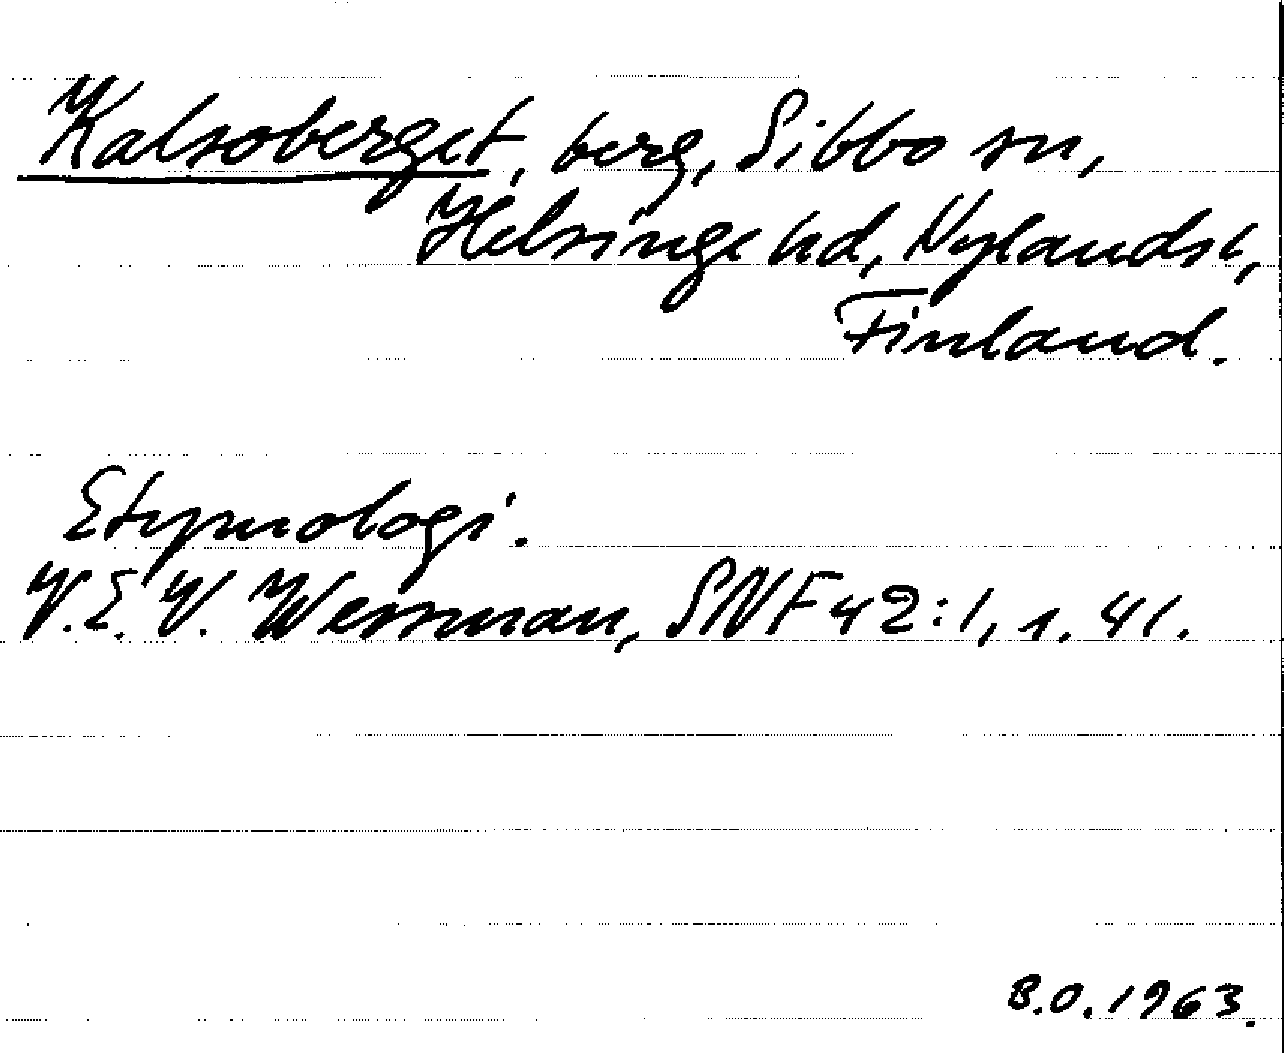 Kalsoberget, berg, Sibbo sn,
Helsinge hd, Nylands l,
Finland.
Etymologi.
V.E.V. Wessman, SNF 42:1, s. 41.
B.O. 1963.